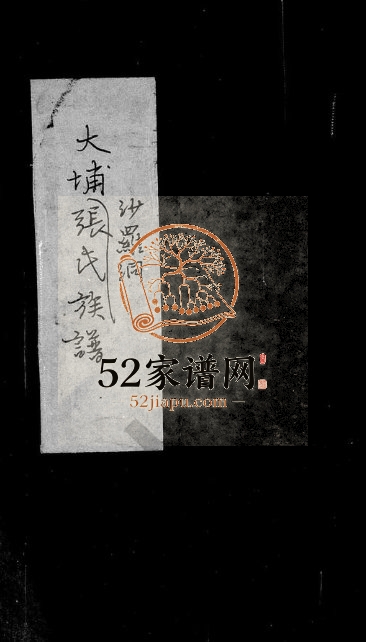 大埔張氏族譜
沙羅洞
52家谱网
52jiapu.com